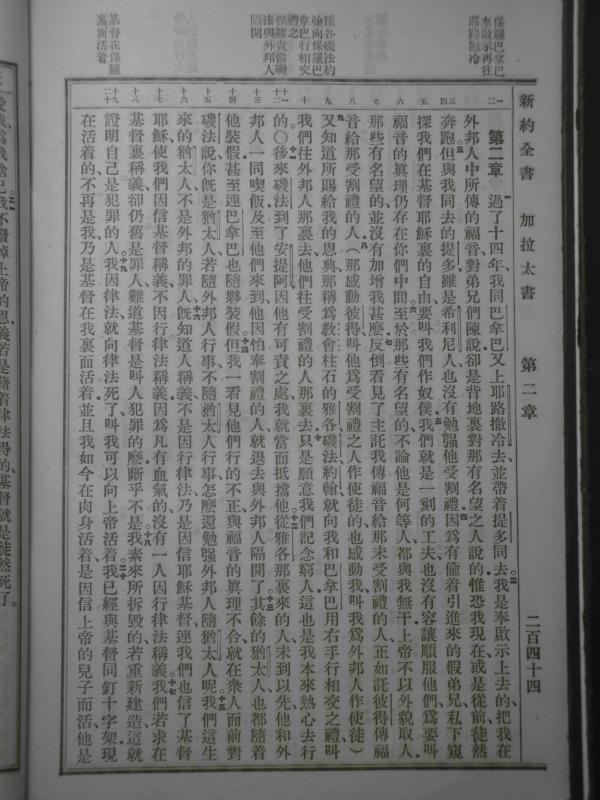 保羅巴拿巴
奉啟示再往
耶路撒冷
雅各磯法約
翰向保羅巴
拿巴行相交
禮之
保羅責備磯
法與外邦人
隔開
基督在保羅
裏面活着
新約全書 加拉太書 第二章 二百四十四
第二章 過了十四年、我同巴拿巴又上耶路撒冷去並帶着提多同去我是奉啟示上去的把我在
外邦人中所傳的福音對弟兄們陳說卻是背地裏對那有名望之人說的惟恐我現在或是從前徒然
奔跑但與我同去的提多雖是希利尼人也沒有勉强他受割禮因爲有偷着引進來的假弟兄私下窺
探我們在基督耶穌裏的自由要叫我們作奴僕我們就是一刻的工夫也沒有容讓順服他們爲要叫
福音的眞理仍存在你們中間至於那些有名望的不論他是何等人都與我無干上帝不以外貌取人
那些有名望的並沒有加增我甚麼反倒看見了主託我傳福音給那未受割禮的人正如託彼得傳福
音給那受割禮的人(那感動彼得叫他爲受割禮之人作使徒的也感動我叫我爲外邦人作使徒)
又知道所賜給我的恩典那稱爲教會柱石的雅各磯法約翰就向我和巴拿巴用右手行相交之禮叫
我們往外邦人那裏去他們往受割禮的人那裏去只是願意我們記念窮人這也是我本來熱心去行
的〇後來磯法到了安提阿因他有可責之處我就當面抵擋他從雅各那裏來的人未到以先他和外
邦人一同喫飯及至他們來到他因怕奉割禮的人就退去與外邦人隔開了其餘的猶太人也都隨着
他裝假甚至連巴拿巴也隨夥裝假但我一看見他們行的不正與福音的眞理不合就在衆人面前對
磯法說你旣是猶太人若隨外邦人行事不隨猶太人行事怎麽還勉强外邦人隨猶太人呢我們這生
來的猶太人不是外邦的罪人旣知道人稱義不是因行律法乃是因信耶穌基督連我們也信了基督
耶穌使我們因信基督稱義不因行律法稱義因爲凡有血氣的沒有一人因行律法稱義我們若求在
基督裏稱義卻仍舊是罪人難道基督是叫人犯罪的麽斷乎不是我素來所拆毀的若重新建造這就
證明自己是犯罪的人我因律法就向律法死了叫我可以向上帝活着我已經與基督同釘十字架現
在活着的不再是我乃是基督在我裏面活着並且我如今在肉身活着是因信上帝的兒子而活他是
愛我爲我捨己我不廢掉上帝的恩義若是藉着律法得的基督就是徒然死了。